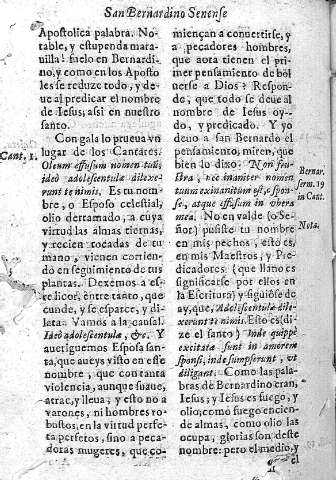 San Bernardino Senense
Apostolica palabra. No-
table, y estupenda mara-
uilla! fuelo en Bernardi-
no, y como en los Aposto
les se reduze todo, y de-
ue al predicar el nombre
de Iesus, assi en nuestro
santo.
Con gala lo prueua vn
lugar de los Cantares.
Cant, 1.
Oleum effusum nomen tuũ,
ideò adolescentulæ dilexe-
runt te nimis. Es tu nom-
bre, o Esposo celestial,
olio derramado, a cuya
virtud las almas tiernas,
y recien tocadas de tu
mano, vienen corrien-
do en seguimiento de tus
plantas. Dexemos a es-
te licor, entre tanto, que
cunde, y se esparce, y di-
lata. Vamos a la causal.
Ideò adolescentulæ, &c. Y
aueriguemos Esposa san-
ta, que aueys visto en esse
nombre, que con tanta
violencia, aunque suaue,
atrae, y lleua; y esto no a
varones, ni hombres ro-
bustos, en la virtud perfe-
ta perfetos, sino a peca-
doras mugeres, que co-
miençan a conuertirse, y
a pecadores hombres,
que aora tienen el pri-
mer pensamiento de bol
uerse a Dios? Respon-
de, que todo se deue al
nombre de Iesus oy-
do, y predicado. Y yo
deuo a san Bernardo el
pensamiento, miren, que
bien lo dixo. Non fru-
Bernar.
serm. 19
in Cant.
stra, nec inaniter nomen
tuum exinanitum est, ò spon-
se, atque effusum in vbera
mea. No en valde (o Se-
Nota.
ñor) pusiste tu nombre
en mis pechos, esto es,
en mis Maestros, y Pre-
dicadores (que llano es
significarse por ellos en
la Escritura) y siguiose de
ay, que, Adolescentulæ dile-
xerunt te nimis. Esto es (di-
ze el santo) Inde quippè
excitatæ sunt in amorem
sponsi, inde sumpserunt, vt
diligant. Como las pala-
bras de Bernardino eran,
Iesus; y Iesus es fuego, y
olio; como fuego encien-
de almas, como olio las
ocupa, glorias son deste
nombre: pero el medio, y
el